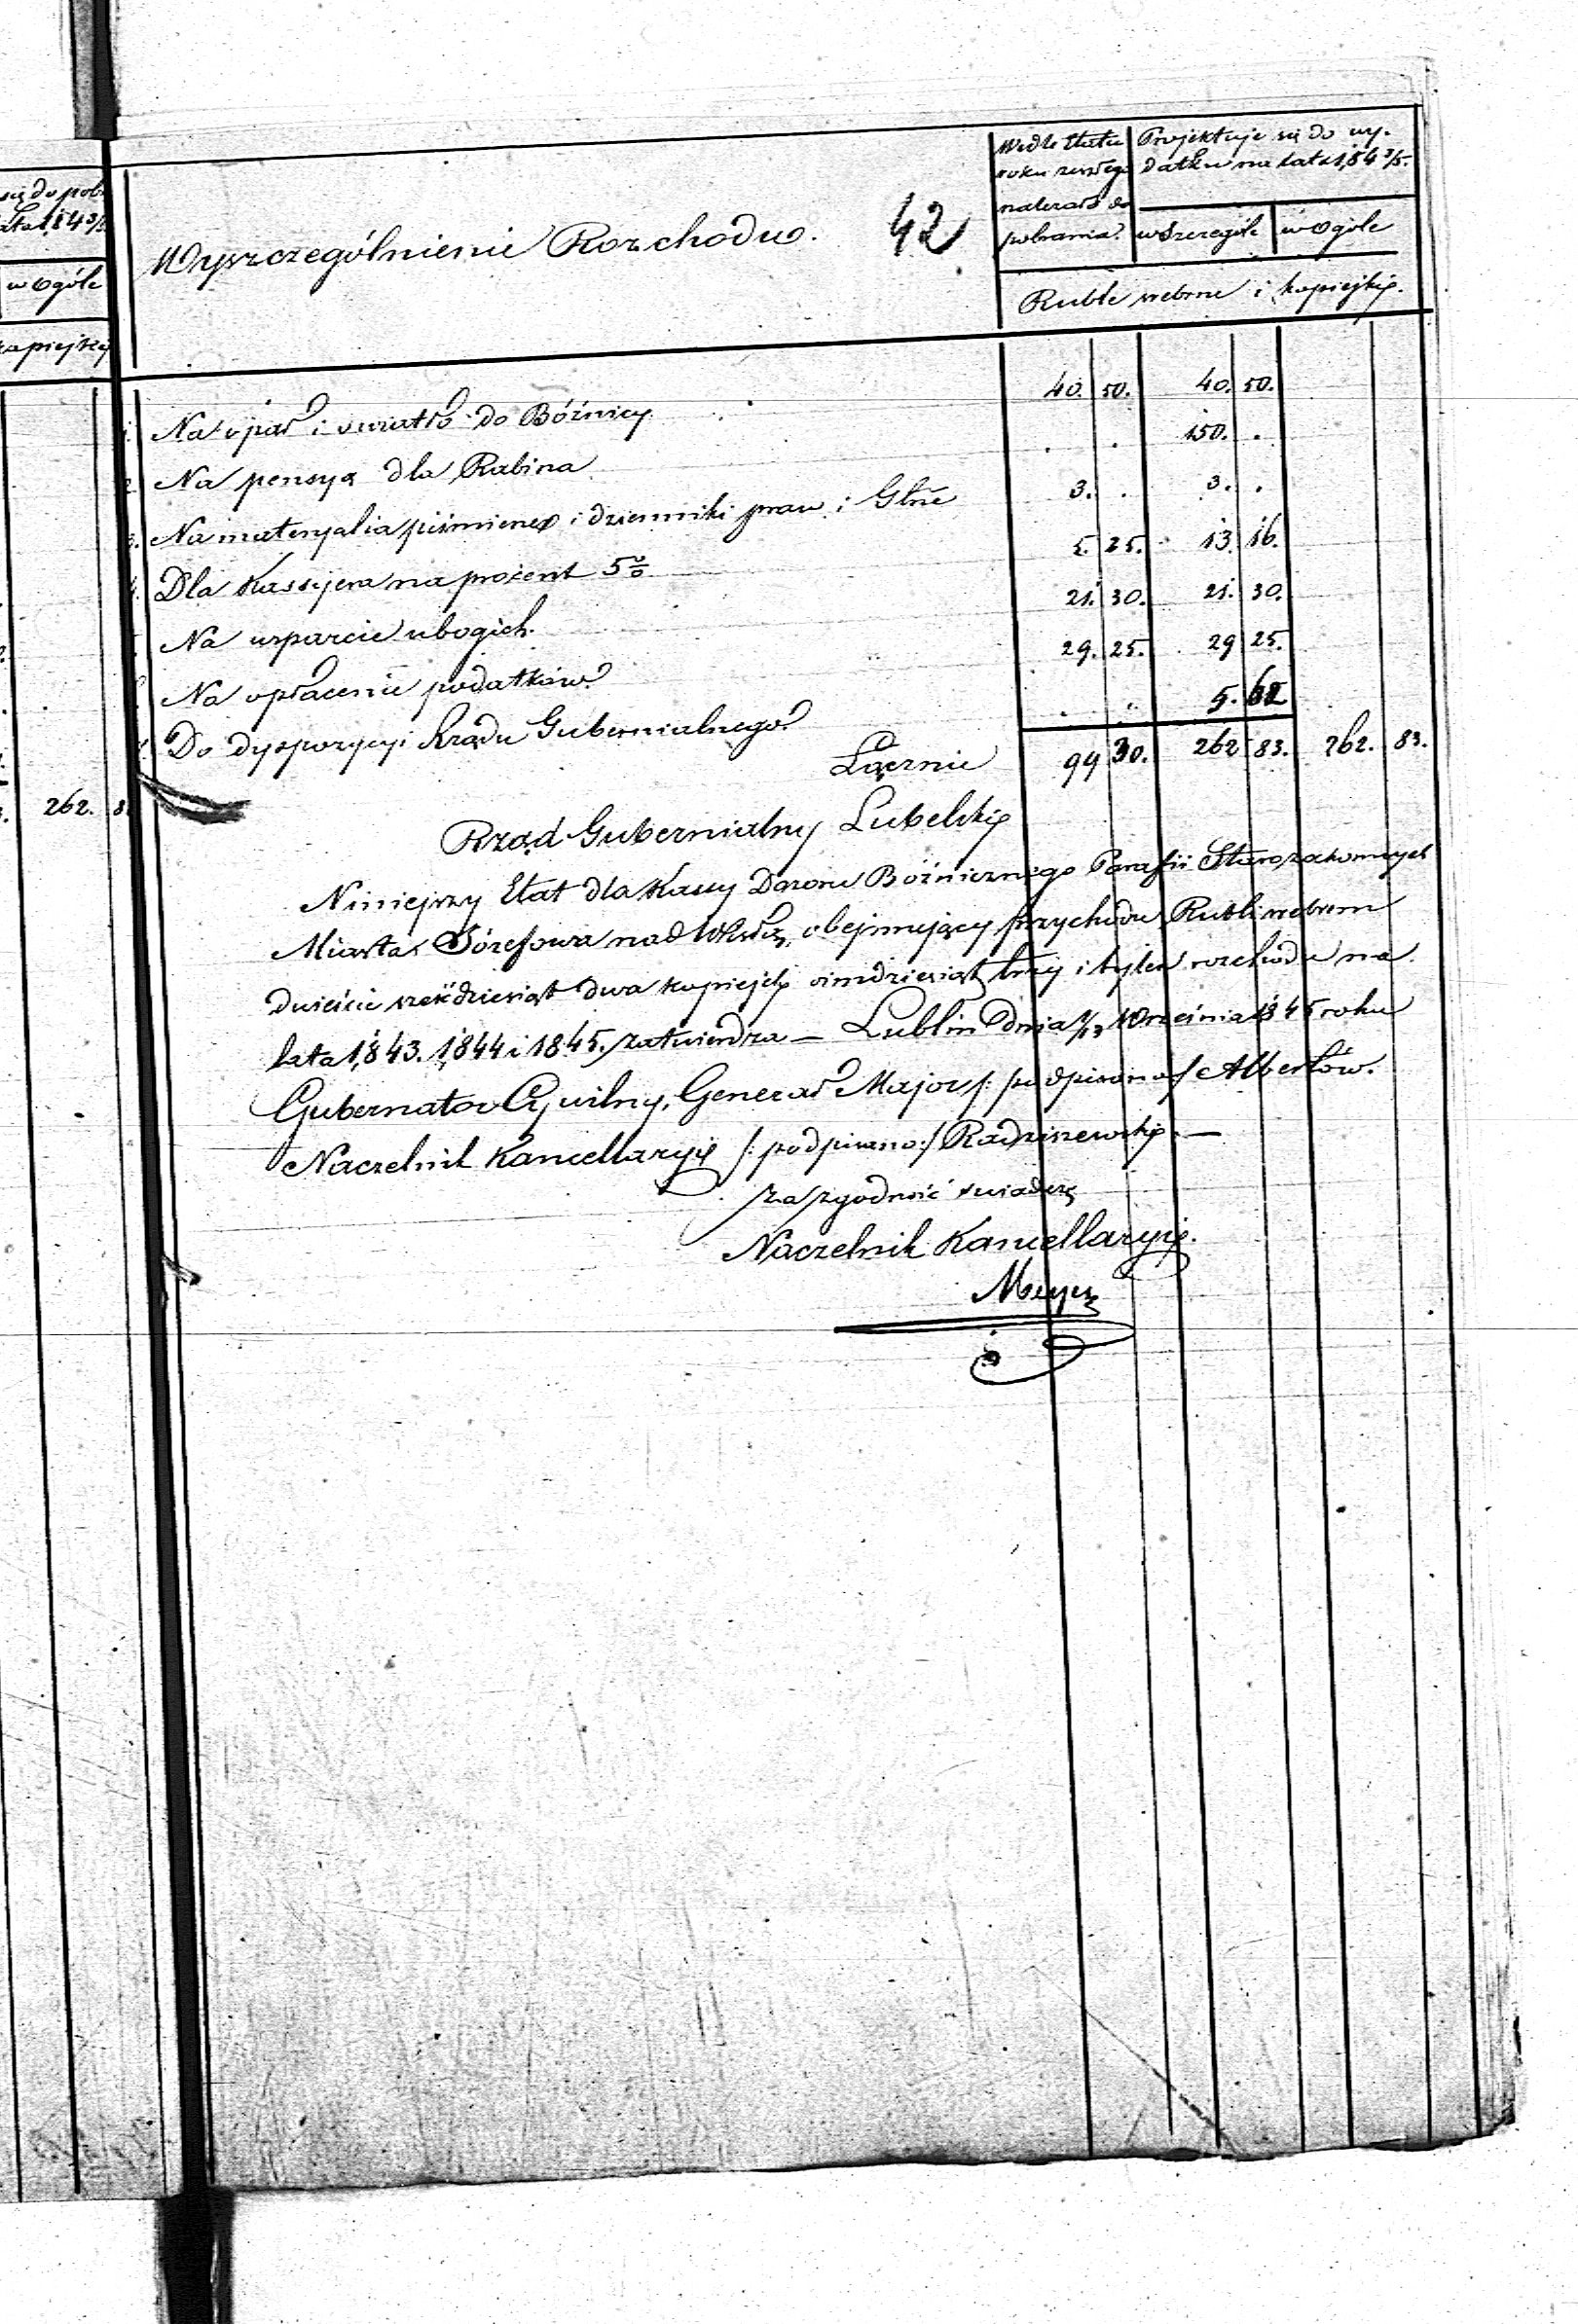 się do pob
lata 184 3/5
w Ogóle
kopiejki
262. 8
Wyszczególnienie Rozchodu. 42
Wedle Etatu
roku zeszłego
należało do
pobrania.
Projektuje się do wy-
datku na lata 184 3/5.
w szczególe w Ogóle
Ruble srebrne i kopiejki.
1. Na opał i swiatło do Bóźnicy 40. 50. 40. 50.
2. Na pensyą dla Rabina . . 150. .
3. Na materyalia piśmienne i dzienniki praw i Głne 3. . 3. .
4. Dla Kassyera na procent 5 % 5. 25. 13. 16.
Na wsparcie ubogich. 21. 30. 21. 30.
Na opłacenie podatków 29. 25. 29 25.
7. Do dyspozycyi Rządu Gubernialnego . . 5. 62
Łącznie 99 30. 262 83. 262. 83.
Rząd Gubernialny Lubelski
Niniejszy Etat dla Kassy Dozoru Bóźnicznego Parafii Starozakonnych
Miasta Józefowa nad Wisłą, obejmujący przychodu Rubli srebrem
dwieście sześćdziesiąt dwa kopiejek ośmdziesiąt trzy i tyleż rozchodu na
lata 1843. 1844 i 1845. zatwierdza — Lublin dnia 1/13 Września 1845 roku
Gubernator Cywilny, Generał Major /: podpisano :/ Albertów.
Naczelnik Kancellaryi /: podpisano :/ Radziszewski. —
Za zgodność swiadczę
Naczelnik Kancellaryi.
Meyer